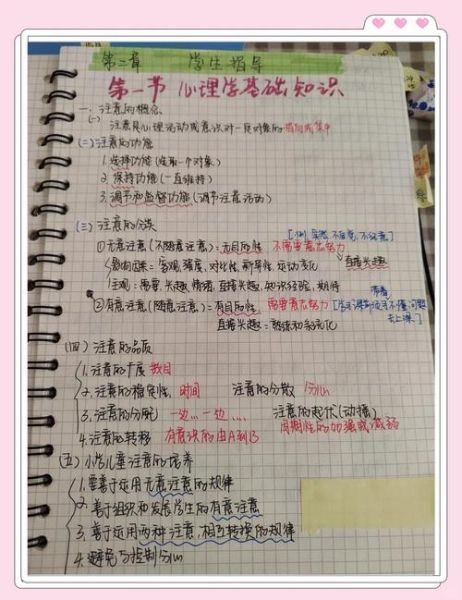 第二章 学生指导
第一节 心理学基础知识
一、注意的概念
(一) 注意是心理活动或意识对一定对象的指向或集中
(二)注意的功能
1.选择功能(选取一个对象)
2.保持功能(一直维持)
3.调节和监督功能(调节注意活动)
(三)注意的分类
[例 突然、不自觉、不经意]
①无意注意(不随意注意)=无目的性 不需要意志努力
影响因素=客观:强度、对比性、新异性、运动变化 直接兴趣
主观:需要、兴趣、情绪、直接兴趣、知识经验、期待
②有意注意(随意注意)=有目的性 需要意志努力
带着 问题
去上课
直接兴趣=
(四)注意的品质
1.注意的广度 数目
2.注意的稳定性 时间 注意的分散 分心
3.注意的分配 一边…一边…. 注意的起伏(动摇)
周期性的加强或减弱
4.注意的转移 有意识的由A到B
(五)小学儿童注意的培养
1.要善于运用无意注意的规律
2.善于组织和发展学生的有意注意
3.善于运用两种注意相互转换的规律
4.避免与控制分心